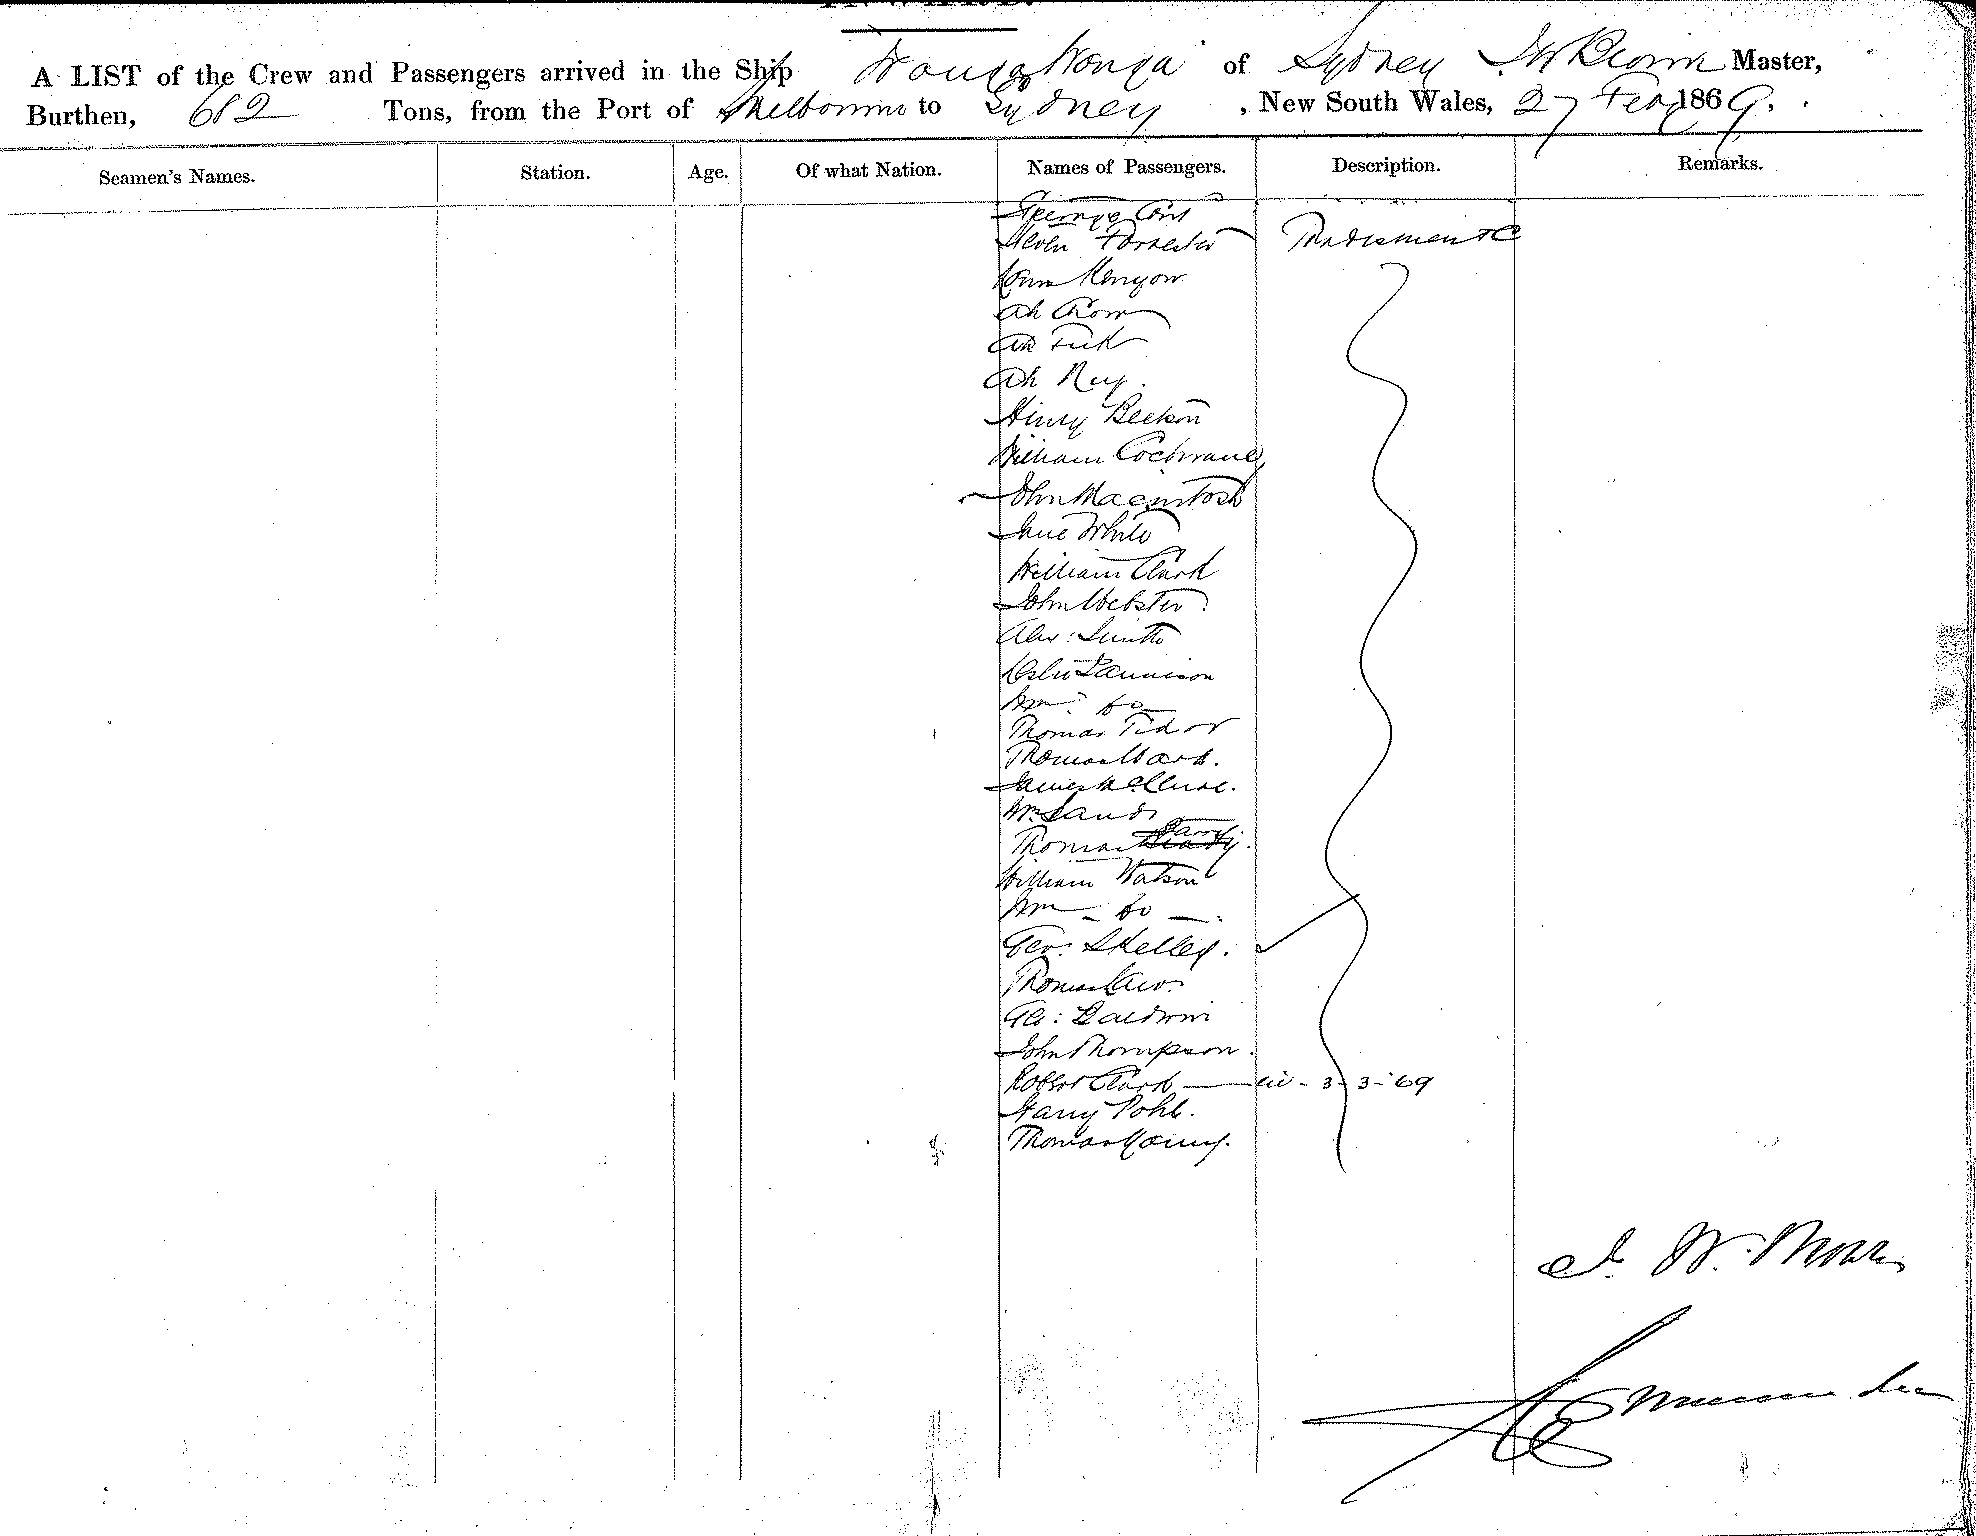 A LIST of the Crew and Passengers arrived in the Ship Wonga Wonga of Sydney J W Brown Master,
Burthen, 682 Tons, from the Port of Melbourne to Sydney, New South Wales, 27 Feby 1869.
Seamen's Names. Station. Age. Of what Nation. Names of Passengers. Description. Remarks.
George
Forrester Tradesmen &c
Kenyon
Ah Chow
Ah
Ah
Henry
William Cochrane
John Macintosh
Jane White
William Clark
John Webster
Alex: Smith
Wm. Do
Thomas Tidor
Thomas Ward.
James McClure.
Wm Sands
Thomas
William Watson
Wm - Do -
Geo: Skelley.
Thomas
Geo: Baldwin
John Thompson.
Robert Clark - 3-3-69
Harry Pohl.
Thomas Young.
J. W. Brown
Commander